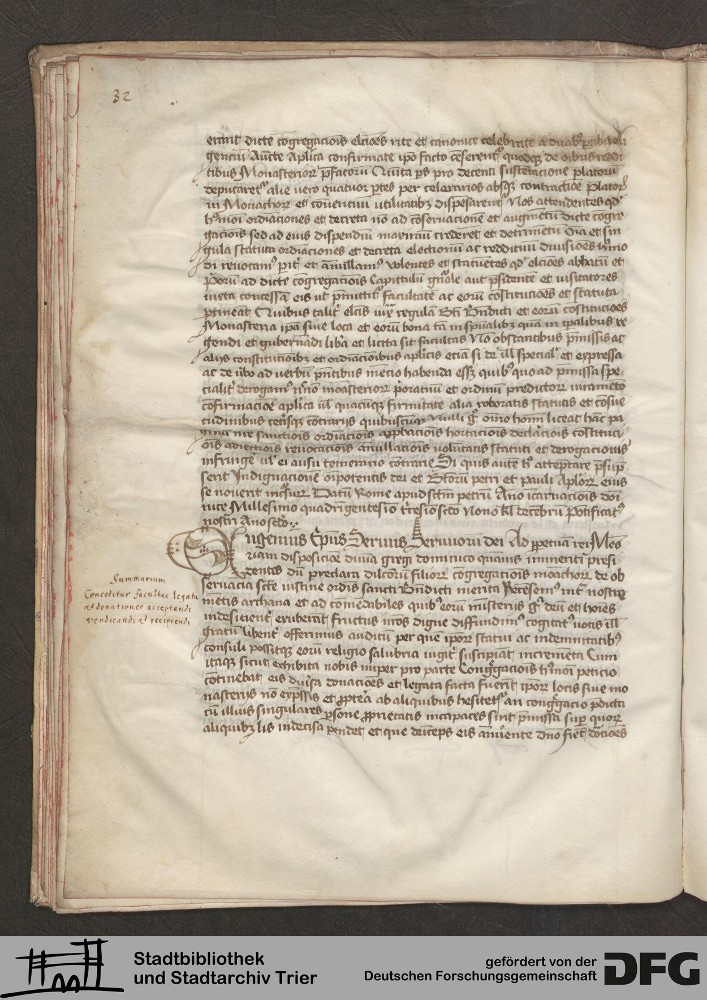 32
erint dicte cogregacois elcioes rite et canonice celebrate a duabꝫ ptibꝫ eli
genciu Aucte aplica confirmate ipo facto censerent quodqꝫ de oibus reddi
tibus Monasterioꝝ pfatoru Quita ps pro decenti sustetacione platoru
deputaret alie vero quatuor ptes per celerarios absqꝫ contradictioe platoꝝ
in Monachoꝝ et coventuu utilitatibꝫ dispesarent Nos attendentes qd
hmoi ordiaciones et decreta no ad coservacione et augmetu dicte cogre
gaciois sed ad eius dispendiu maximu crederet et detrimetu Oia et sin
gula statuta ordiaciones et decreta electionu ac reddituu divisiones hmo
di revocamꝰ pit et anullamꝰ volentes et statuetes qd elcioes abbatu et
Poru ad dicte cogregaciois Capittulu gnale aut psidente et visitatores
iuxta concessa eis ut pmittit facultate ac eoru costitucioes et statuta
ptineat Quibus talit elcis iux regula bti Bndicti et eoru costitucioes
Monasteria ipa sive loca et eoru bona ta in spualibꝫ qua in tpalibus re
gendi et gubernadi liba et licita sit facultas No obstantibus pmissis ac
alijs constitucioibꝫ et ordiacioibus aplicis etia si de ill special et expressa
ac de vbo ad verbu pntibus mecio habenda essꝫ quibꝰ quo ad pmissa spe
cialit derogamꝰ nno moasterioꝝ poratuu et ordinu predictoꝝ iurameto
cofirmacioe aplica vl quacuqꝫ firmitate alia roboratis statutis et cosue
tudinibus ceterisqꝫ contrarijs quibuscuqꝫ Nulli gͦ oino homi liceat hac pa
ginā nre sanctiois ordiaciois approbaciois hortaciois declaciois costituci
ois adiectiois revocaciois anullaciois volutatis statuti et derogacionis
infringe vl ei ausu temerario contraire Si quis aute h atteptare psup
serit Indignacione oipotentis dei et btoru petri et pauli Aploꝝ eius
se noverit incursuꝝ Datu Rome apud sctm petru Ano icarnaciois doi
nice Millesimo quadrigentesio tricesio scto Nono kl decebris Potificatꝰ
nostri Ano scdo
Eugenius Epus Servus Servorum dei Ad ppetuā rei Meo
riam disposicioe divia gregi dominico quamvis immeriti presi
dentis du preclara dilcoru filioꝝ cogregaciois moachoꝝ de ob
servacia scte iustine ordis sancti Bndicti merita Recesemꝰ int nostre
metis archana et ad comedabiles quibꝰ eoru musterijs gͥ dei et hoies
indesinent exuberat fructus nros digne diffundimꝰ cogitatꝰ votis ill
gratu libent offerimus auditu per que ipoꝝ statui ac indemnitatibꝰ
consuli possitqꝫ eoru religio salubria iugit suscipiat incremeta Cum
itaqꝫ sicut exhibita nobis nuper pro parte Congregaciois hmoi peticio
cotinebat eis divisa donacioes et legata facta fuerit ipoꝝ locis sive mo
nasterijs no expssis et ppterea ab aliquibus hesitetꝰ an congregacio pdicta
cu illius singulares psone pprietatis incapaces sint pmissa sup quoꝝ
aliquibꝫ lis indecisa pendet et que deiceps eis anuente dno fiet dotioes
Summarium
Conceditur facultas legata
et donationes acceptandi
vendicandi et recipiendi
Stadtbibliothek
und Stadtarchiv Trier
gefördert von der
Deutschen Forschungsgemeinschaft
DFG